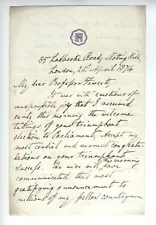 35 Ladbroke Road, Notting Hill
London, 25th April 1874
My dear Professor Fawcett,
It was with emotions of
inexpressible joy that I received
early this morning the welcome
tidings of your triumphant
election to Parliament. Accept my
most cordial and warmest congratu-
lations on your triumphant
success. The wire will have
communicated this most
gratifying announcement to
millions of my fellow countrymen